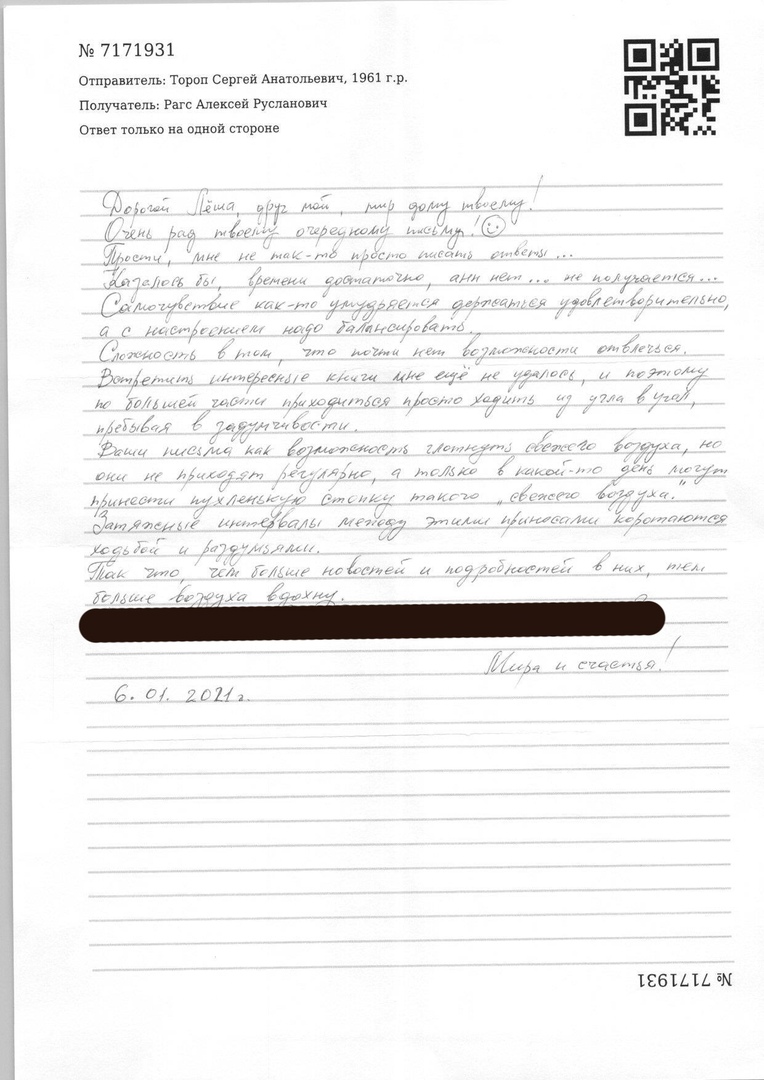 № 7171931
Отправитель: Тороп Сергей Анатольевич, 1961 г.р.
Получатель: Рагс Алексей Русланович
Ответ только на одной стороне
Дорогой Лёша, друг мой, мир дому твоему!
Очень рад твоему очередному письму!
Прости, мне не так-то просто писать ответы...
Казалось бы, времени достаточно, анн нет... не получается...
Самочувствие как-то умудряется держаться удовлетворительно,
а с настроением надо балансировать.
Сложность в том, что почти нет возможности отвлечься.
Встретить интересные книги мне ещё не удалось, и поэтому
по большей части приходиться просто ходить из угла в угол,
пребывая в задумчивости.
Ваши письма как возможность глотнуть свежего воздуха, но
они не приходят регулярно, а только в какой-то день могут
принести пухленькую стопку такого „свежего воздуха."
Затяжные интервалы между этими приносами коротаются
ходьбой и раздумьями.
Так что, чем больше новостей и подробностей в них, тем
больше воздуха вдохну.
Мира и счастья!
6. 01. 2021г.
№ 7171931